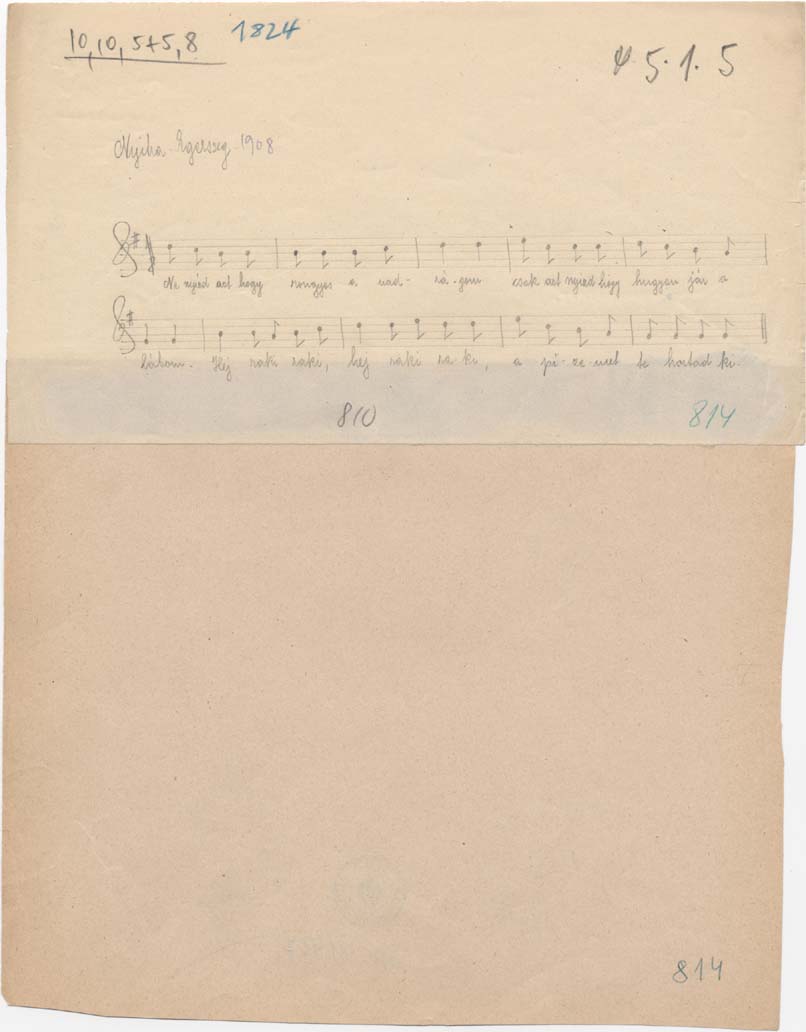 10, 10, 5+5, 8 1824
5. 1. 5
Nyitra-Egerszeg 1908
Ne nyizd azt hogy rongyos a nad-rá-gom csak azt nyizd hogy hogyan jár a
lábom. Hej zaki, hej zaki za ki, a pí-ze-met te hortad ki.
810 814
814